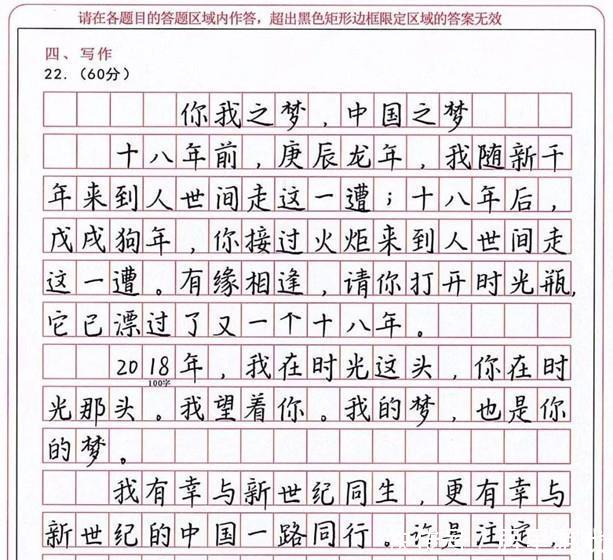 请在各题目的答题区域内作答，超出黑色矩形边框限定区域的答案无效
四、写作
22.（60分）
你我之梦，中国之梦
十八年前，庚辰龙年，我随新千
年来到人世间走这一遭；十八年后，
戊戌狗年，你接过火炬来到人世间走
这一遭。有缘相逢，请你打开时光瓶，
它已漂过了又一个十八年。
2018年，我在时光这头，你在时
100字
光那头。我望着你。我的梦，也是你
的梦。
我有幸与新世纪同生，更有幸与
新世纪的中国一路同行。许是注定，